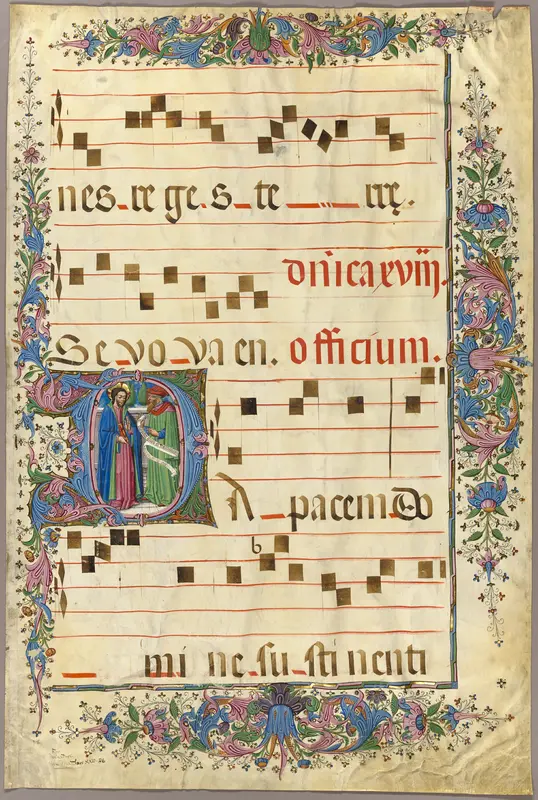 nes re ge s te rrę.
dn̄ica xviij.
Se vo va en. officium.
DA pacem Do
mi ne su sti nenti